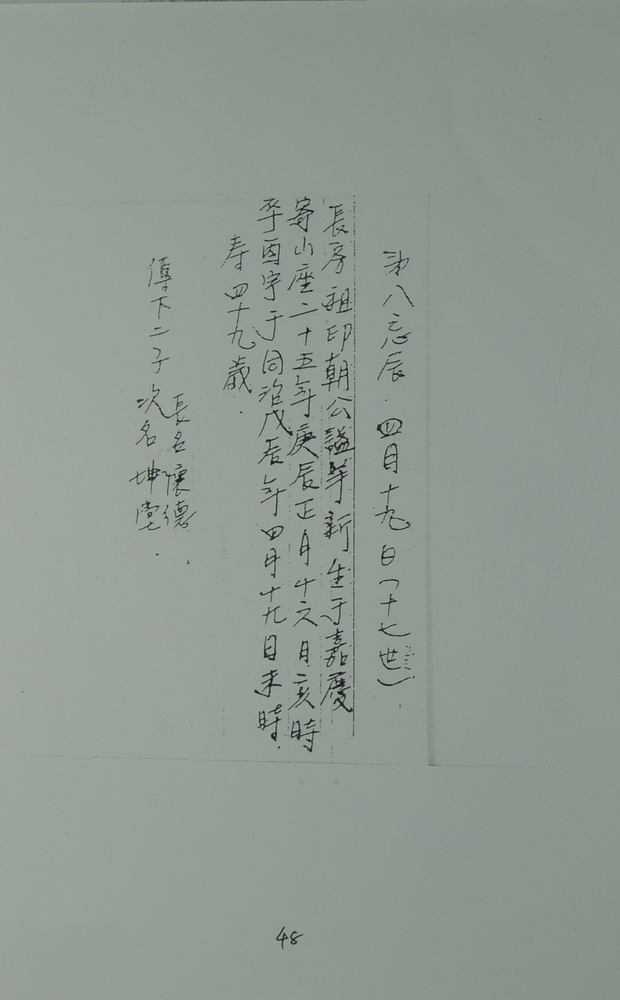 第八忌辰．四月十九日(十七世)
長房祖印朝公諡華新生于嘉慶
寄山座二十五年庚辰正月十六日亥時
卒酉字于同治戊辰年四月十九日未時．
寿四十九歲．
傳下二子
長名懷德．
次名坤堂．
48